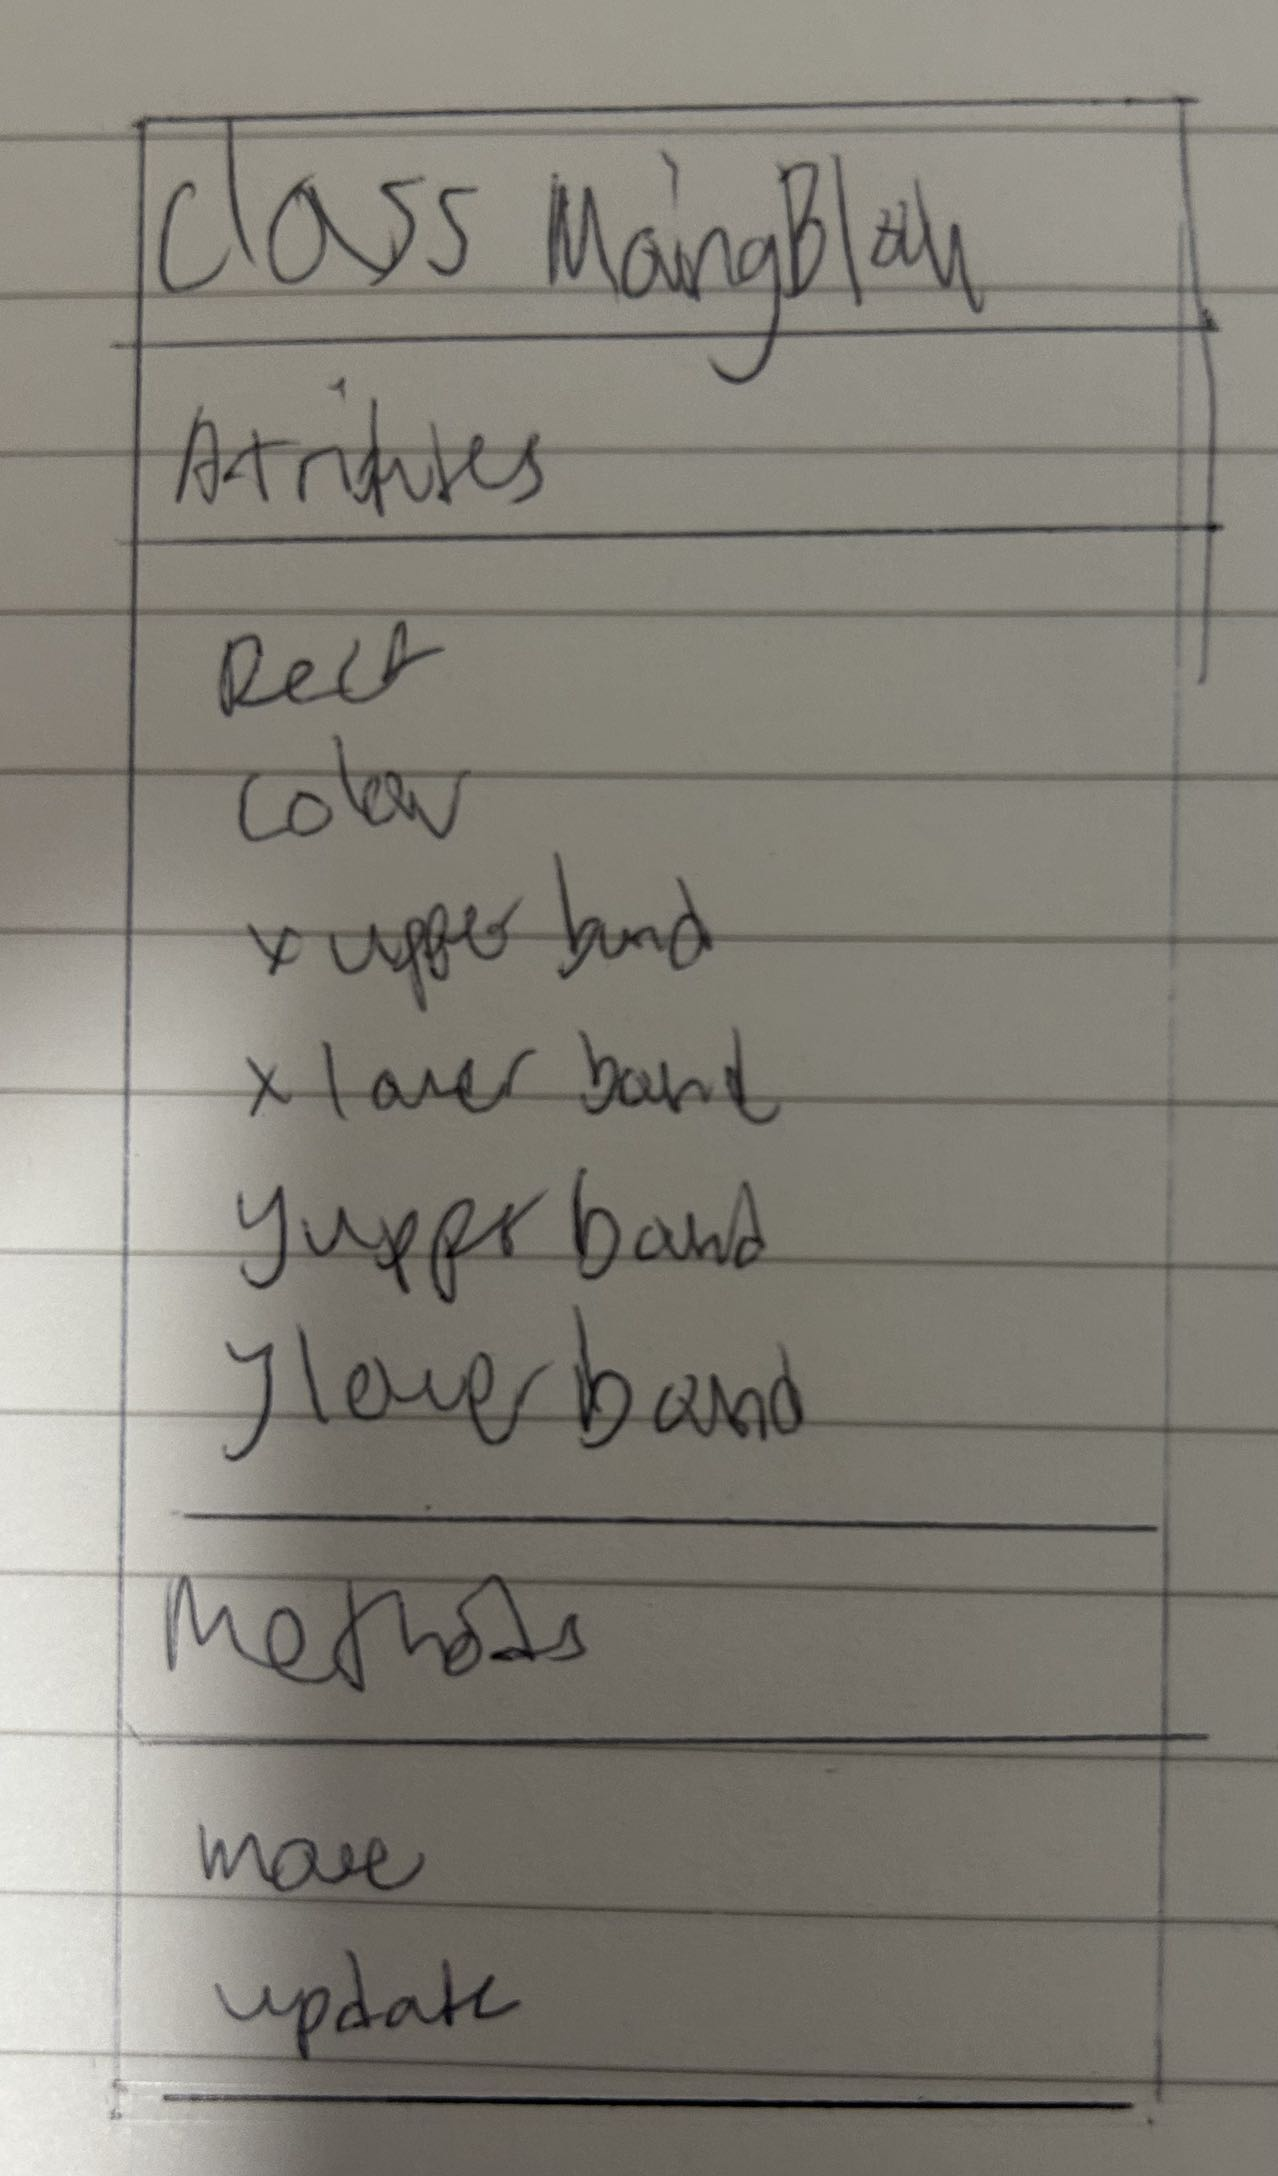 class MovingBlock
Attributes
Rect
Colour
x upper bound
x lower bound
y upper bound
y lower bound
Methods
move
update